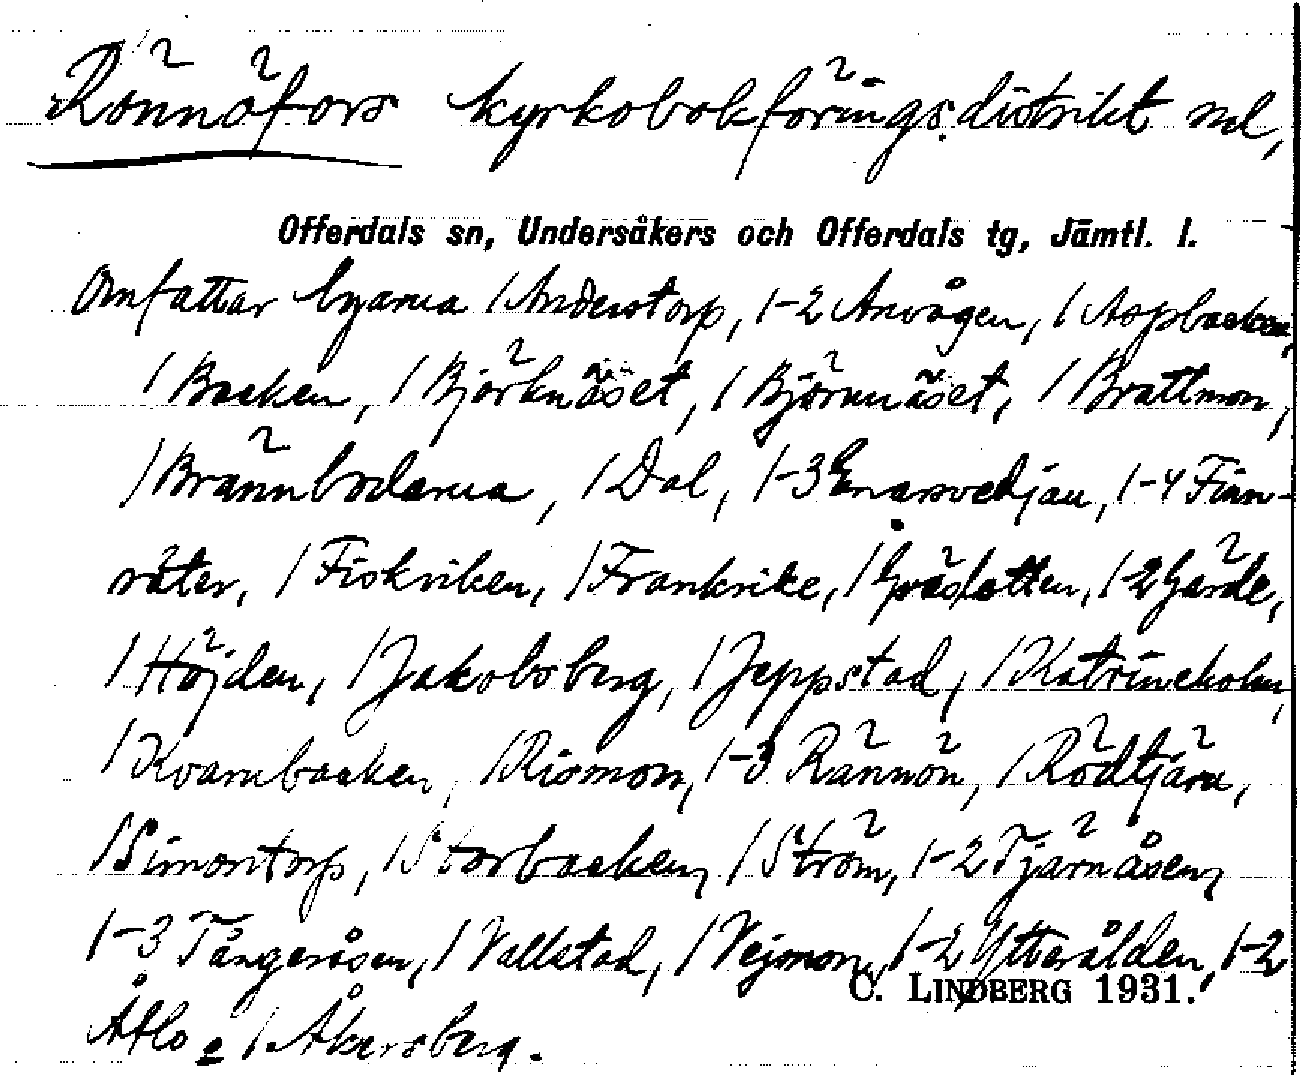 Rönnöfors kyrkobokföringsdistrikt ml,
Offerdals sn, Undersåkers och Offerdals tg, Jämtl. l.
Omfattar byarna 1 Anderstorp, 1-2 Anvågen, 1 Aspbacken,
1 Backen, 1 Björknäset, 1 Björnnäset, 1 Brattmon,
1 Brännbodarna, 1 Dal, 1-3 Enarsvedjan, 1-4 Finn-
säter, 1 Fiskviken, 1 Frankrike, 1 Gråslotten, 1-2 Gärde,
1 Höjden, 1 Jakobsberg, 1 Jeppstad, 1 Katrineholm,
1 Kvarnbacken, 1 Rismon, 1-3 Rännön, 1 Rödtjärn,
1 Simontorp, 1 Storbacken, 1 Ström, 1-2 Tjärnåsen,
1-3 Tångeråsen, 1 Vallstad, 1 Vejmon, 1-2 Ytterålden, 1-2
C. LINDBERG 1931.
Åflo o 1 Åkersberg.